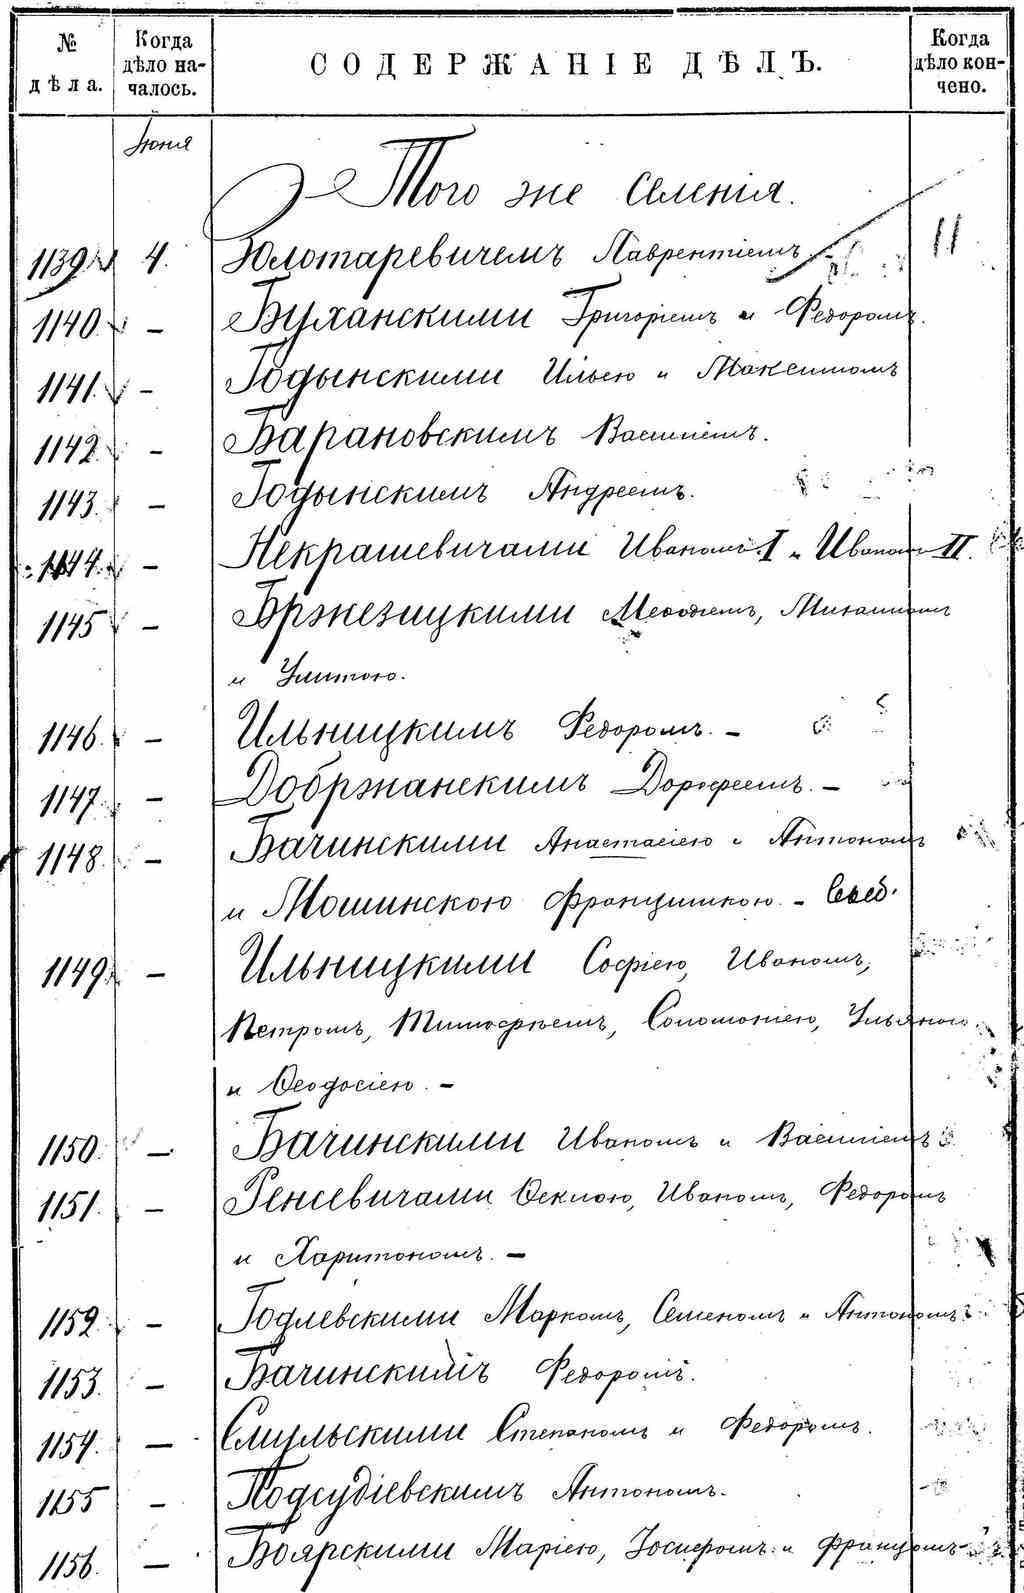 № дѣла. Когда дѣло началось. СОДЕРЖАНІЕ ДѢЛЪ. Когда дѣло кончено.
Июня
Того же Селенія.
1139 4. Золотаревичемъ Лаврентіемъ 11
1140 — Буханскими Григоріемъ и Федоромъ.
1141. — Годынскими Ильею и Максимомъ
1142. — Барановскимъ Василіемъ.
1143. — Годынскимъ Андреемъ.
1144. — Некрашевичами Иваномъ I и Иваномъ II.
1145 — Бржезицкими Михаиломъ
и Улитою.
1146. — Ильницкимъ Федоромъ. —
1147. — Добржанскимъ Дорофеемъ. —
1148. — Бачинскими Анастасіею и Антономъ
и Мошинскою Францишкою. —
1149. — Ильницкими Софіею, Иваномъ,
Петромъ, Тимофѣемъ, Соломоніею, Ульяною
и Ѳеодосіею. —
1150. — Бачинскими Иваномъ и Василіемъ
1151. — Ѳеклою, Иваномъ, Федоромъ
и Харитономъ. —
1152. — Годлевскими Маркомъ, Семеномъ и Антономъ
1153. — Бачинскимъ Федоромъ.
1154. — Смульскими Степаномъ и Федоромъ.
1155 — Подсудіевскимъ Антономъ.
1156. — Боярскими Маріею, Іосифомъ и Францомъ